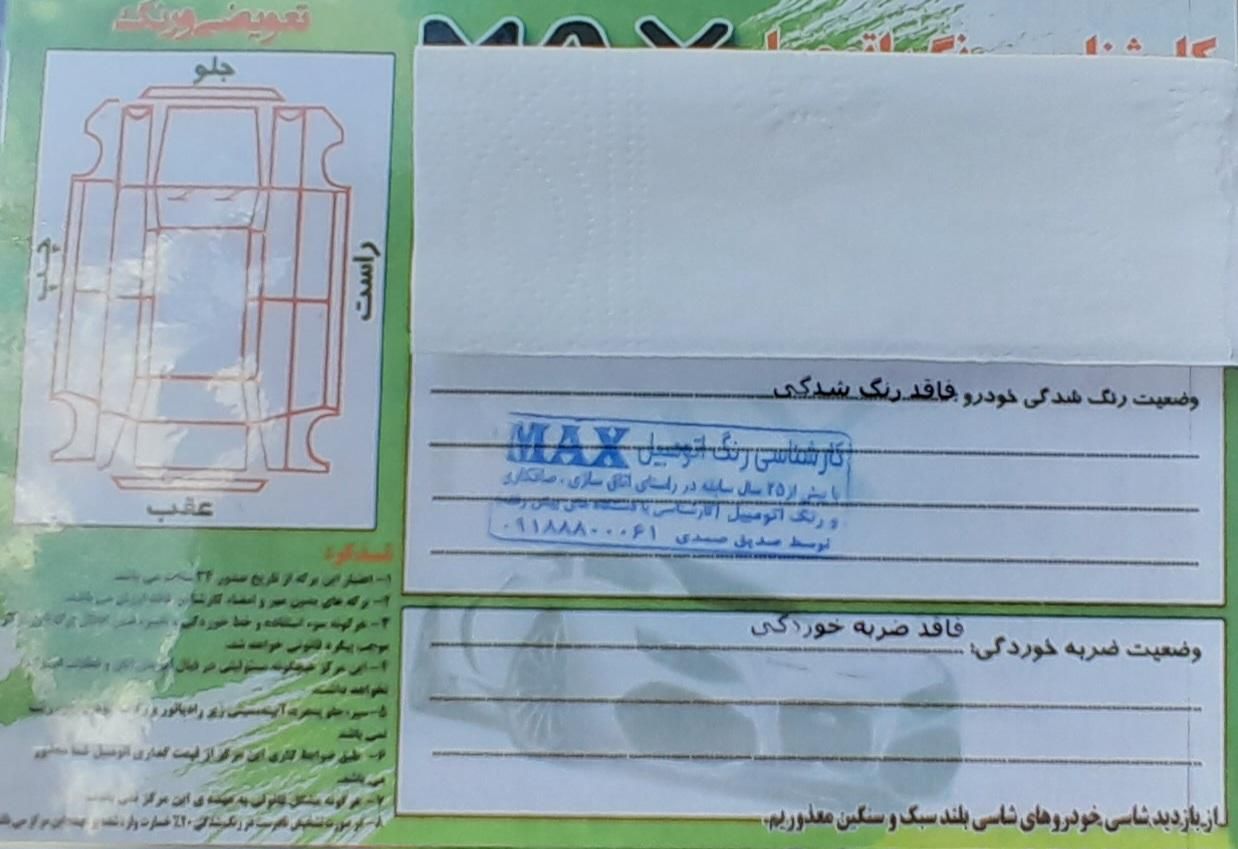 تعویضی و رنگ
MAX
جلو
چپ
راست
عقب
وضعیت رنگ شدگی خودرو: فاقد رنگ شدگی
کارشناسی رنگ اتومبیل MAX
با بیش از ۲۵ سال سابقه در راستای اتاق سازی، صافکاری
و رنگ اتومبیل (کارشناسی با دستگاه های پیش رفته
توسط صدیق صمدی ۰۹۱۸۸۸۰۰۰۶۱
وضعیت ضربه خوردگی: فاقد ضربه خوردگی
۱- اعتبار این برگه از تاریخ صدور ۲۴ ساعت می باشد
۲- برگه های بدون مهر و امضاء کارشناس فاقد ارزش می باشد
۳- هرگونه سوء استفاده و خط خوردگی
موجب پیگرد قانونی خواهد شد
۴- این مرکز هیچگونه مسئولیتی در قبال
نخواهد داشت
۵- سپر جلو
نمی باشد
۶- طبق ضوابط کاری این مرکز از قیمت گذاری اتومبیل شما معذور
می باشد
۷- هرگونه مشکل قانونی به عهده ی این مرکز نمی باشد
۸- در صورت تشخیص نادرست در رنگ شدگی ۲۰٪ خسارت وارد شده بر عهده این مرکز می باشد
از بازدید شاسی خودروهای شاسی بلند سبک و سنگین معذوریم.